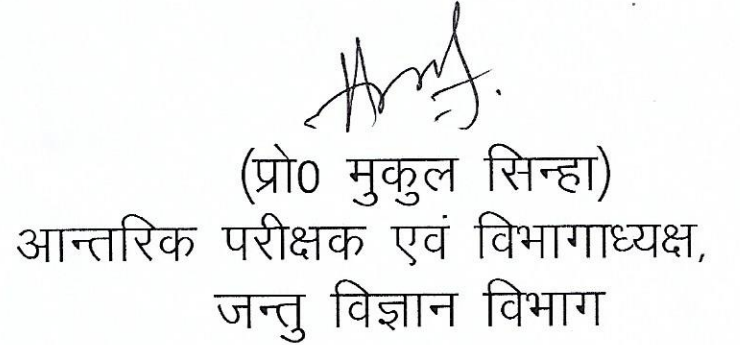 (प्रो0 मुकुल सिन्हा)
आन्तरिक परीक्षक एवं विभागाध्यक्ष,
जन्तु विज्ञान विभाग